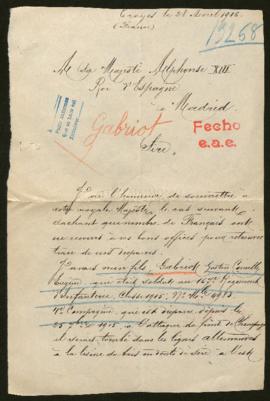 Troyes le 21 Avril 1916.
(France)
13258
A Sa Majesté Alphonse XIII
Roi d'Espagne
à Madrid
Gabriot
Fecho
e.a.c.
Sire,
J'ai l'honneur de soumettre à
votre royale Majesté le cas suivant,
sachant que nombre de Français ont
eu recours à vos bons offices pour retrouver
trace de nos disparus.
J'avais mon fils, Gabriot
Eugène, qui était soldat au Régiment
d'Infanterie, Classe 1905,
Compagnie, qui est disparu depuis le
25 1915, à l'attaque de front de Champagne
et serait tombé dans les lignes allemandes
à la lisière de bois